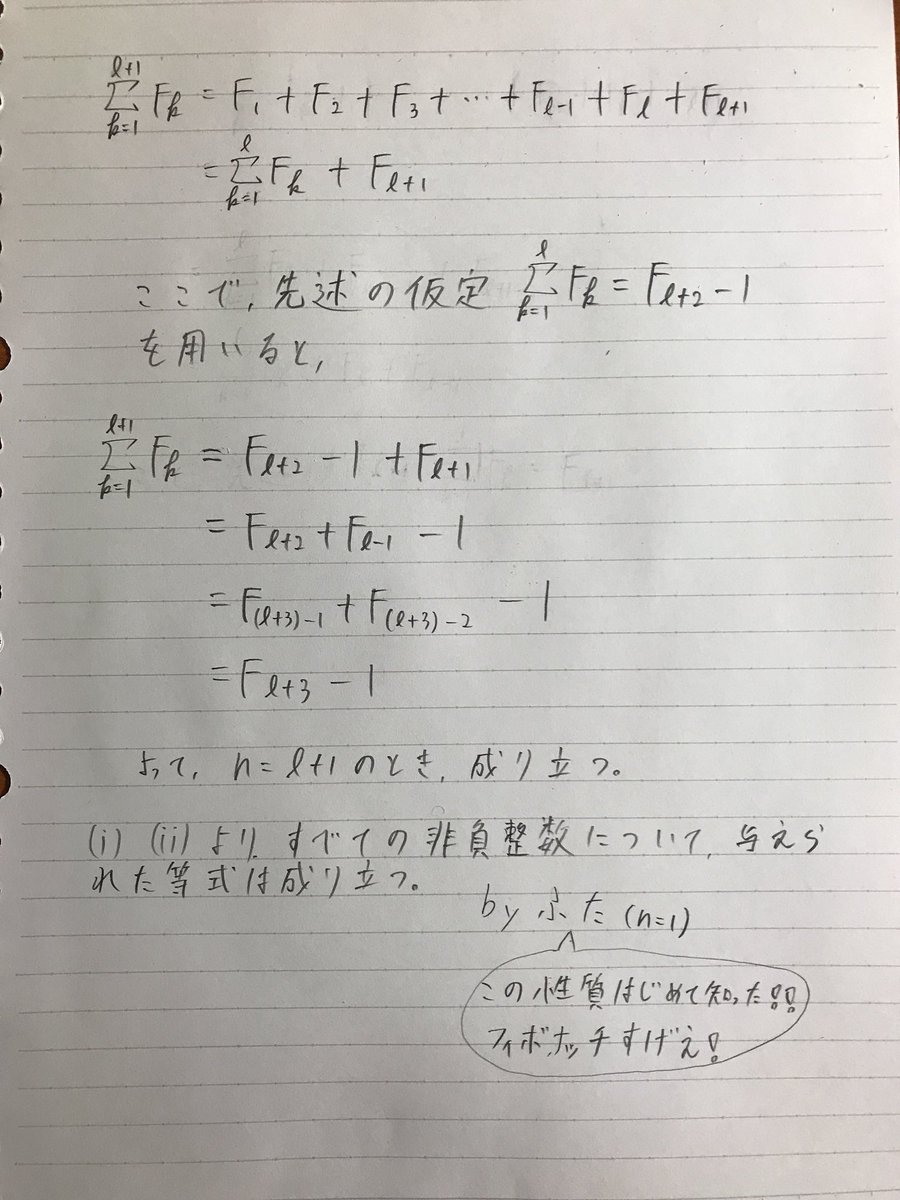 $\sum_{k=1}^{l+1} F_k = F_1 + F_2 + F_3 + \cdots + F_{l-1} + F_l + F_{l+1}$
$= \sum_{k=1}^{l} F_k + F_{l+1}$
ここで, 先述の仮定 $\sum_{k=1}^{l} F_k = F_{l+2} - 1$
を用いると,
$\sum_{k=1}^{l+1} F_k = F_{l+2} - 1 + F_{l+1}$
$= F_{l+2} + F_{l-1} - 1$
$= F_{(l+3)-1} + F_{(l+3)-2} - 1$
$= F_{l+3} - 1$
よって, n = l+1 のとき, 成り立つ。
(i) (ii) より, すべての非負整数について, 与えら
れた等式は成り立つ。
by ふた (n=1)
この性質はじめて知った!!
フィボナッチすげえ!